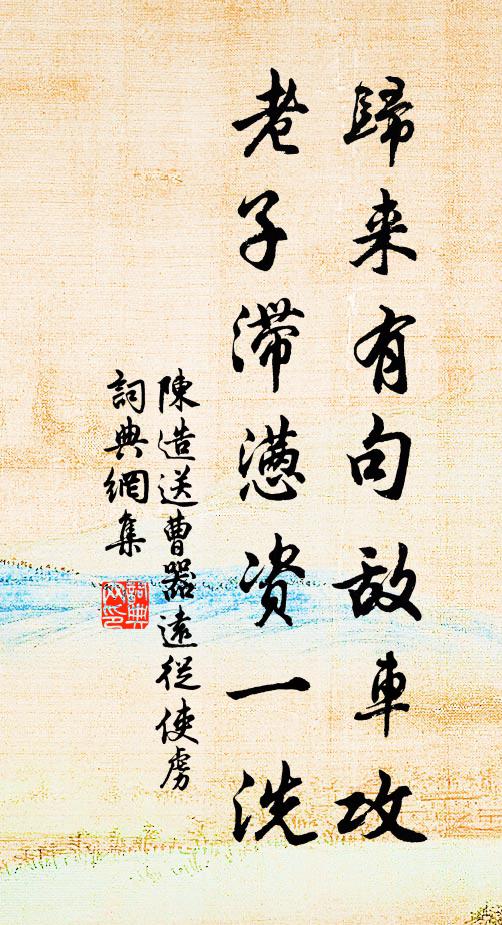 歸来有句敌車攻
老子滞懑资一洗
陳造送曹器遠従使虜
詞典網集